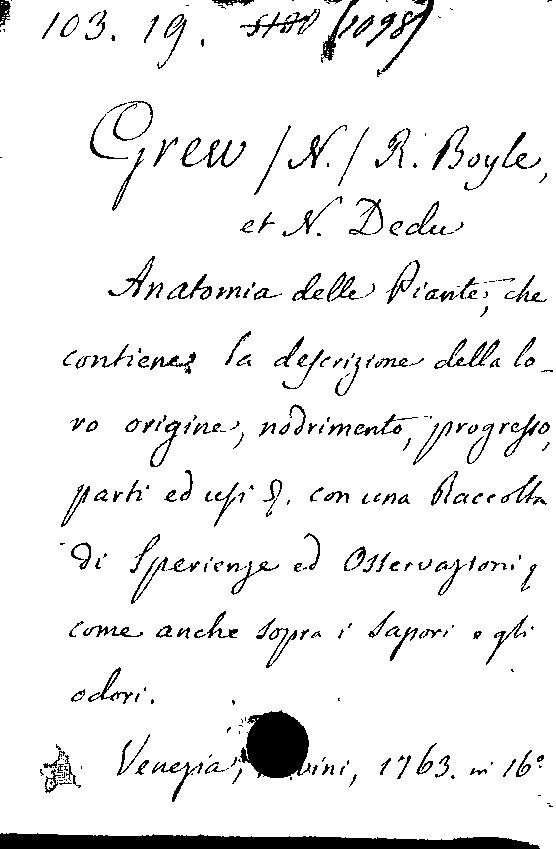 103. 19. (1098)
Grew / N. / R. Boyle,
et N. Dedu
Anatomia delle Piante, che
contiene la descrizione della lo-
ro origine, nodrimento, progresso,
parti ed usi &. con una Raccolta
di Sperienze ed Osservazioni,
come anche sopra i Sapori e gli
odori.
Venezia, 1763. in 16°